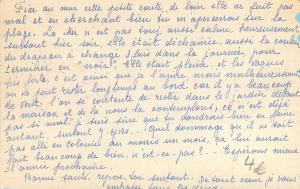 Fixé au mur cette petite carte, de loin elle ne fait pas
mal et en cherchant bien tu m'apercevras sur la
plage. La mer n'est pas tout aussi calme, heureusement
surtout hier soir, elle était déchaînée, aussi la couleur
du drapeau a changé 3 fois dans la journée, pour
terminer, en elle était pleine, et les vagues
fortes, c'est ainsi que je l'aime, mais malheureusement
on va peut rester longtemps au bord car il y a beaucoup
de vent. l'on se contente de rester dans le jardin devant
la maison et de là nous la contemplons, ce n'est déjà
pas si mal. je suis sûre que tu voudrais bien en faire
autant, surtout, quel dommage qu'il ne soit
pas allé en colonie au moins un mois, ça lui aurait
fait beaucoup de bien, n'est-ce-pas ? Espérons mieux
l'année prochaine. 4€
Bonne santé, repose toi surtout. De tout cœur je vous
embrasse tous les deux